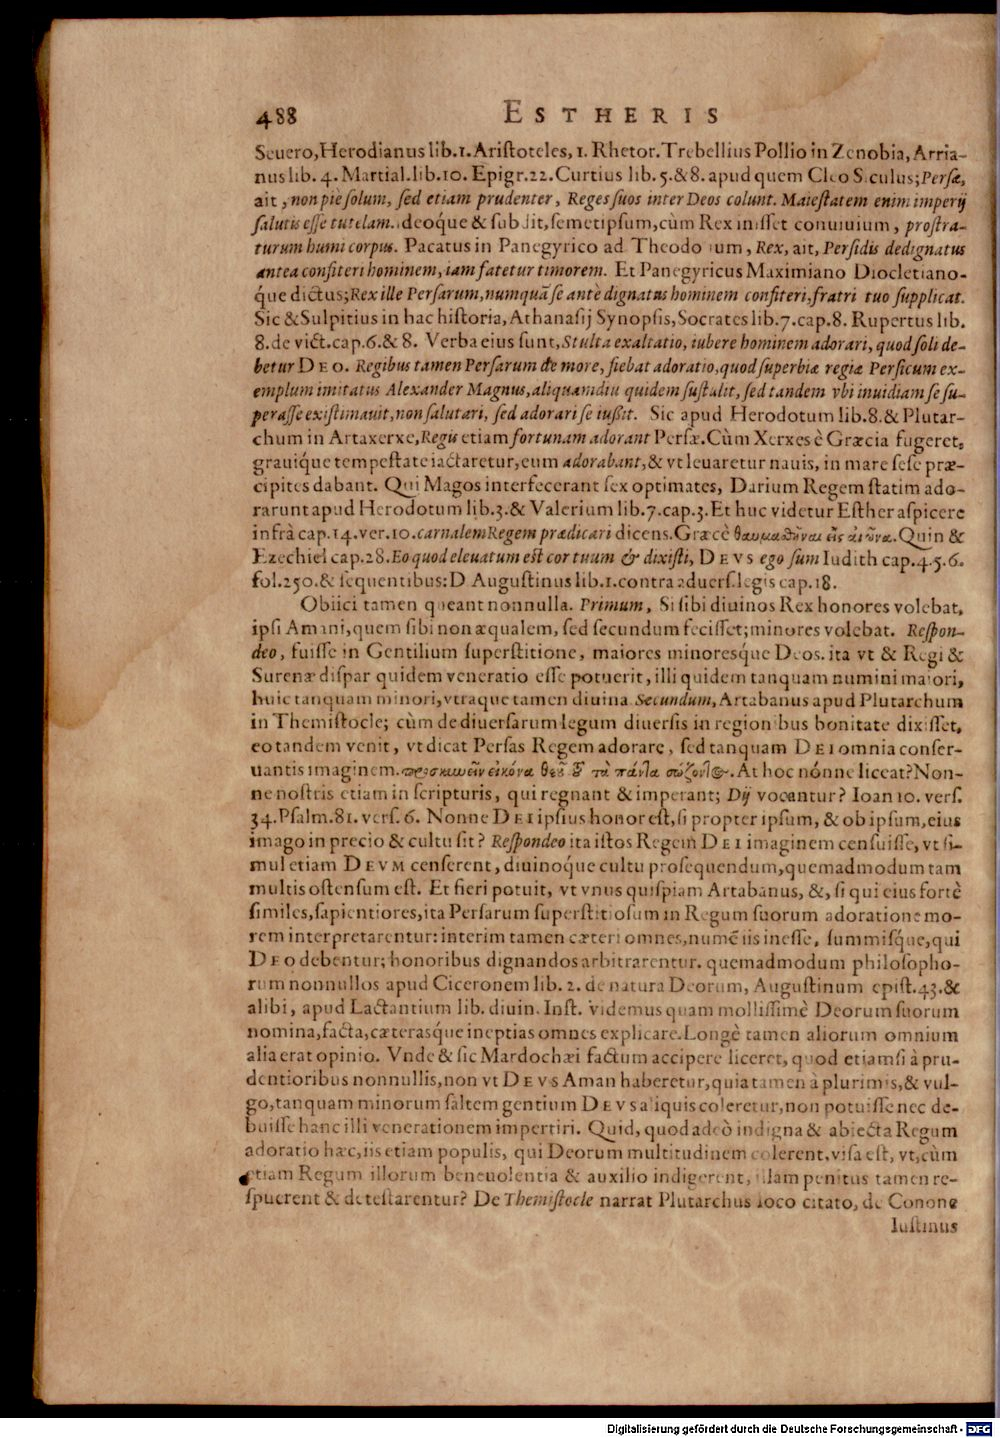 488 ESTHERIS
Seuero, Herodianus lib. 1. Aristoteles, 1. Rhetor. Trebellius Pollio in Zenobia, Arria-
nus lib. 4. Martial. lib. 10. Epigr. 22. Curtius lib. 5. & 8. apud quem Cleo Siculus; Persæ,
ait, non piè solum, sed etiam prudenter, Reges suos inter Deos colunt. Maiestatem enim imperij
salutis esse tutelam. ideoque & subdit, semetipsum, cùm Rex inisset conuiuium, prostra-
turum humi corpus. Pacatus in Panegyrico ad Theodosium, Rex, ait, Persidis dedignatus
antea confiteri hominem, iam fatetur timorem. Et Panegyricus Maximiano Diocletiano-
q́ue dictus; Rex ille Persarum, numquã se antè dignatus hominem confiteri, fratri tuo supplicat.
Sic & Sulpitius in hac historia, Athanasij Synopsis, Socrates lib. 7. cap. 8. Rupertus lib.
8. de vict. cap. 6. & 8. Verba eius sunt, Stulta exaltatio, iubere hominem adorari, quod soli de-
betur DEO. Regibus tamen Persarum de more, fiebat adoratio, quod superbiæ regiæ Persicum ex-
emplum imitatus Alexander Magnus, aliquamdiu quidem sustulit, sed tandem vbi inuidiam se su-
perasse existimauit, non salutari, sed adorari se iußit. Sic apud Herodotum lib. 8. & Plutar-
chum in Artaxerxe, Regis etiam fortunam adorant Persæ. Cùm Xerxes è Græcia fugeret,
grauiq́ue tempestate iactaretur, eum adorabant, & vt leuaretur nauis, in mare sese præ-
cipites dabant. Qui Magos interfecerant sex optimates, Darium Regem statim ado-
rarunt apud Herodotum lib. 3. & Valerium lib. 7. cap. 3. Et huc videtur Esther aspicere
infrà cap. 14. ver. 10. carnalem Regem prædicari dicens. Græcè θαυμασθῆναι εἰς αἰῶνα. Quin &
Ezechiel cap. 28. Eo quod eleuatum est cor tuum & dixisti, DEVS ego sum Iudith cap. 4. 5. 6.
fol. 250. & sequentibus: D Augustinus lib. 1. contra aduers. legis cap. 18.
Obiici tamen queant nonnulla. Primum, Si sibi diuinos Rex honores volebat,
ipsi Amani, quem sibi non æqualem, sed secundum fecisset; minores volebat. Respon-
deo, fuisse in Gentilium superstitione, maiores minoresq́ue Deos. ita vt & Regi &
Surenæ dispar quidem veneratio esse potuerit, illi quidem tanquam numini maiori,
huic tanquam minori, vtraque tamen diuina. Secundum, Artabanus apud Plutarchum
in Themistocle; cùm de diuersarum legum diuersis in regionibus bonitate dixisset,
eo tandem venit, vt dicat Persas Regem adorare, sed tanquam DEI omnia conser-
uantis imaginem. προσκυνεῖν εἰκόνα θεοῦ τοῦ τὰ πάντα σώζοντος. At hoc nónne liceat? Non-
ne nostris etiam in scripturis, qui regnant & imperant; Dij vocantur? Ioan 10. vers.
34. Psalm. 81. vers. 6. Nonne DEI ipsius honor est, si propter ipsum, & ob ipsum, eius
imago in precio & cultu sit? Respondeo ita istos Regem DEI imaginem censuisse, vt si-
mul etiam DEVM censerent, diuinoq́ue cultu prosequendum, quemadmodum tam
multis ostensum est. Et fieri potuit, vt vnus quispiam Artabanus, &, si qui eius fortè
similes, sapientiores, ita Persarum superstitiosum in Regum suorum adoratione mo-
rem interpretarentur: interim tamen cæteri omnes, numẽ iis inesse, summisq́ue, qui
DEO debentur; honoribus dignandos arbitrarentur. quemadmodum philosopho-
rum nonnullos apud Ciceronem lib. 2. de natura Deorum, Augustinum epist. 43. &
alibi, apud Lactantium lib. diuin. Inst. videmus quam mollissimè Deorum suorum
nomina, facta, cæterasq́ue ineptias omnes explicare. Longè tamen aliorum omnium
alia erat opinio. Vnde & sic Mardochæi factum accipere liceret, quod etiamsi à pru-
dentioribus nonnullis, non vt DEVS Aman haberetur, quia tamen à plurimis, & vul-
go, tanquam minorum saltem gentium DEVS aliquis coleretur, non potuisse nec de-
buisse hanc illi venerationem impertiri. Quid, quod adeò indigna & abiecta Regum
adoratio hæc, iis etiam populis, qui Deorum multitudinem colerent, visa est, vt, cùm
etiam Regum illorum beneuolentia & auxilio indigerent, illam penitus tamen re-
spuerent & detestarentur? De Themistocle narrat Plutarchus loco citato, de Conone
Iustinus
Digitalisierung gefördert durch die Deutsche Forschungsgemeinschaft - DFG